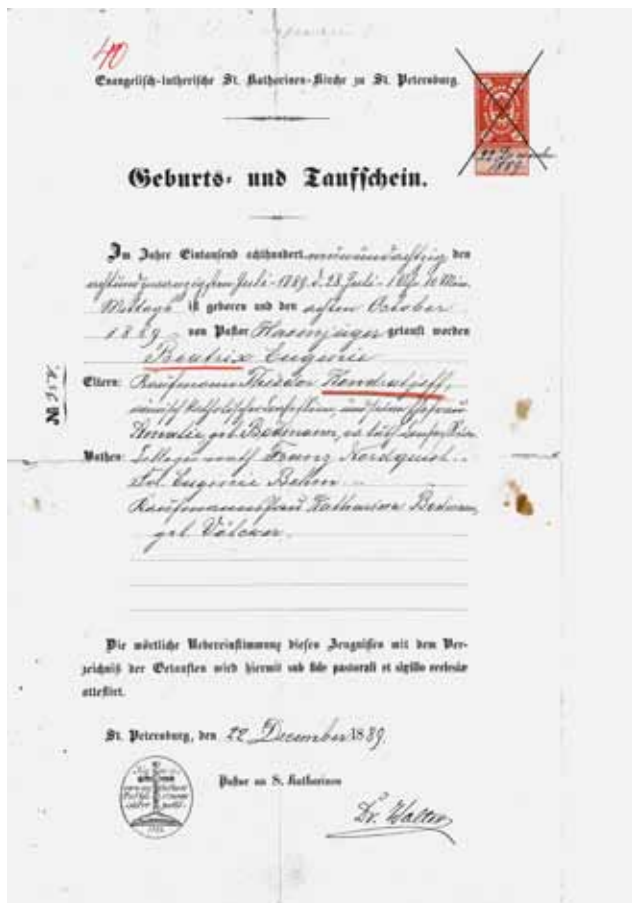 40
Evangelisch-lutherische St. Katharinen-Kirche zu St. Petersburg.
22 December
1889
Geburts- und Taufschein.
Im Jahre Eintausend achthundert neunundachtzig den
achtundzwanzigsten Juli - 1889 d. 28 Juli - 1 Uhr 10 Min.
Mittags ist geboren und den achten October
1889 von Pastor Hasenjäger getauft worden
Beatrix Eugenie
Eltern: Kaufmann Theodor Kondratjeff,
Confession, und seine Ehefrau
Amalie, geb. Bodmann,
Pathen: Franz Nordquist
Frl. Eugenie Behm
Kaufmannsfrau Katharina Bodmann,
geb. Völcker.
№
Die wörtliche Uebereinstimmung dieses Zeugnisses mit dem Ver-
zeichniß der Getauften wird hiermit sub fide pastorali et sigillo ecclesiae
attestirt.
St. Petersburg, den 22 December 1889.
Pastor an St. Katharinen
Dr. Walter